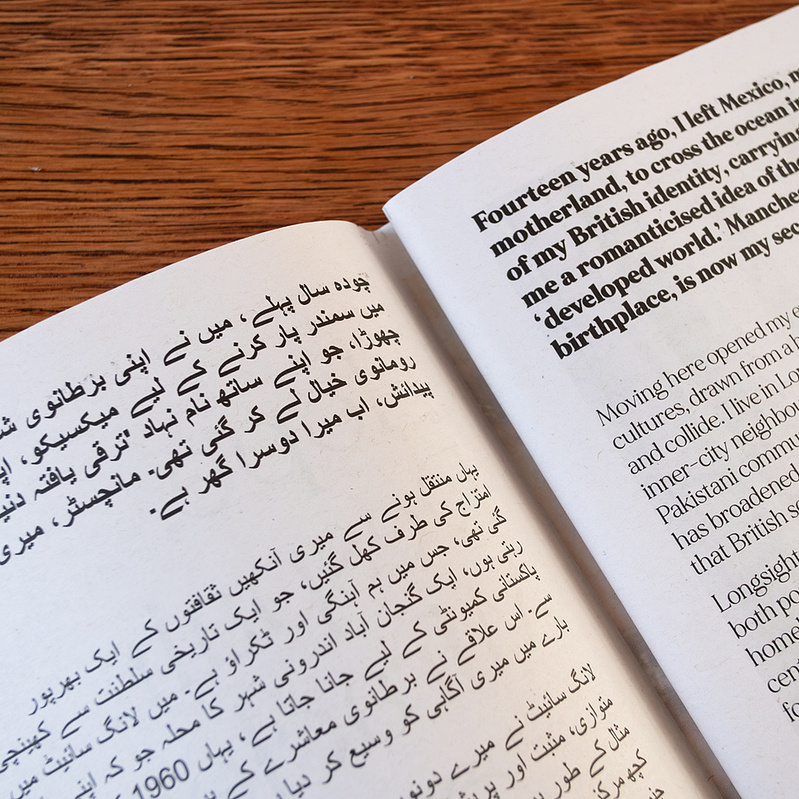 چودہ سال پہلے، میں نے اپنی برطانوی
میں سمندر پار کرنے کے لیے میکسیکو،
چھوڑا، جو اپنے ساتھ نام نہاد 'ترقی یافتہ
رومانوی خیال لے کر گئی تھی۔ مانچسٹر، میری
پیدائش، اب میرا دوسرا گھر ہے۔
یہاں منتقل ہونے سے میری آنکھیں ثقافتوں کے ایک بھرپور
امتزاج کی طرف کھل گئیں، جو ایک تاریخی سلطنت سے کھینچی
گئی تھی، جس میں ہم آہنگی اور ٹکراؤ ہے۔ میں لانگ سائیٹ میں
رہتی ہوں، ایک گنجان آباد اندرونی شہر کا محلہ جو کہ اپنے
پاکستانی کمیونٹی کے لیے جانا جاتا ہے، یہاں 1960
سے۔ اس علاقے نے برطانوی معاشرے کے
بارے میں میری آگاہی کو وسیع کر دیا
لانگ سائیٹ نے میرے دونوں
متوازی، مثبت اور
مثال کے طور
کچھ
Fourteen years ago, I left Mexico,
motherland, to cross the ocean
of my British identity, carrying
me a romanticised idea of the
'developed world.' Manchester
birthplace, is now my
Moving here opened my
cultures, drawn from a
and collide. I live in
inner-city
Pakistani
has broadened
that British
Longsight
both